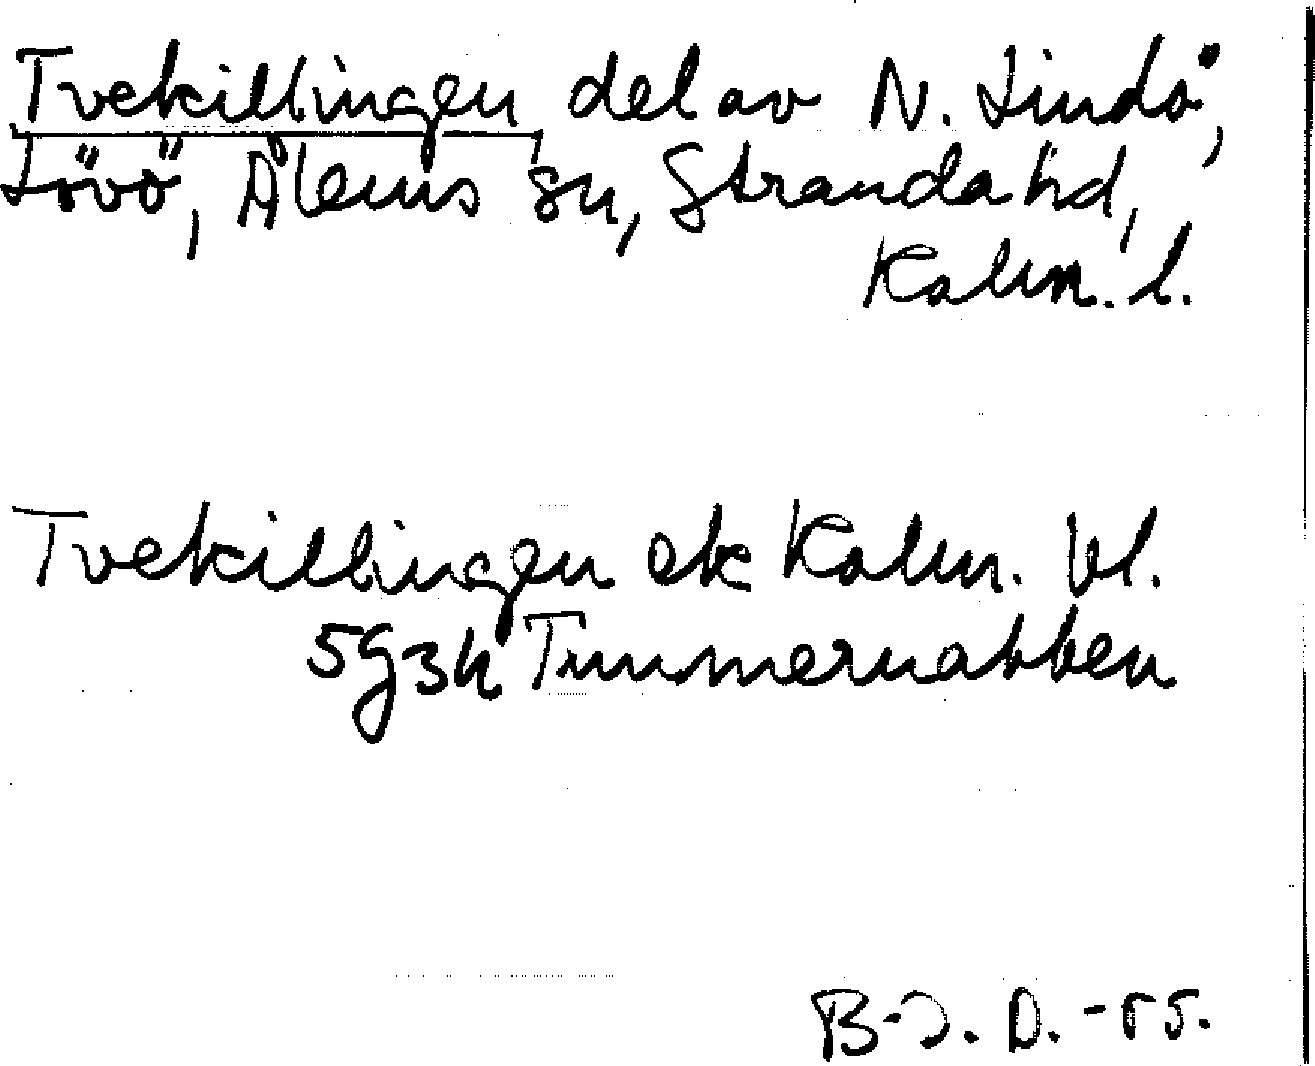 Tvekillingen del av N. Lindö,
Lövö, Ålems sn, Stranda hd,
Kalm. l.
Tvekillingen ek Kalm. bl.
5g3h Timmernabben
B-J. D. -55.